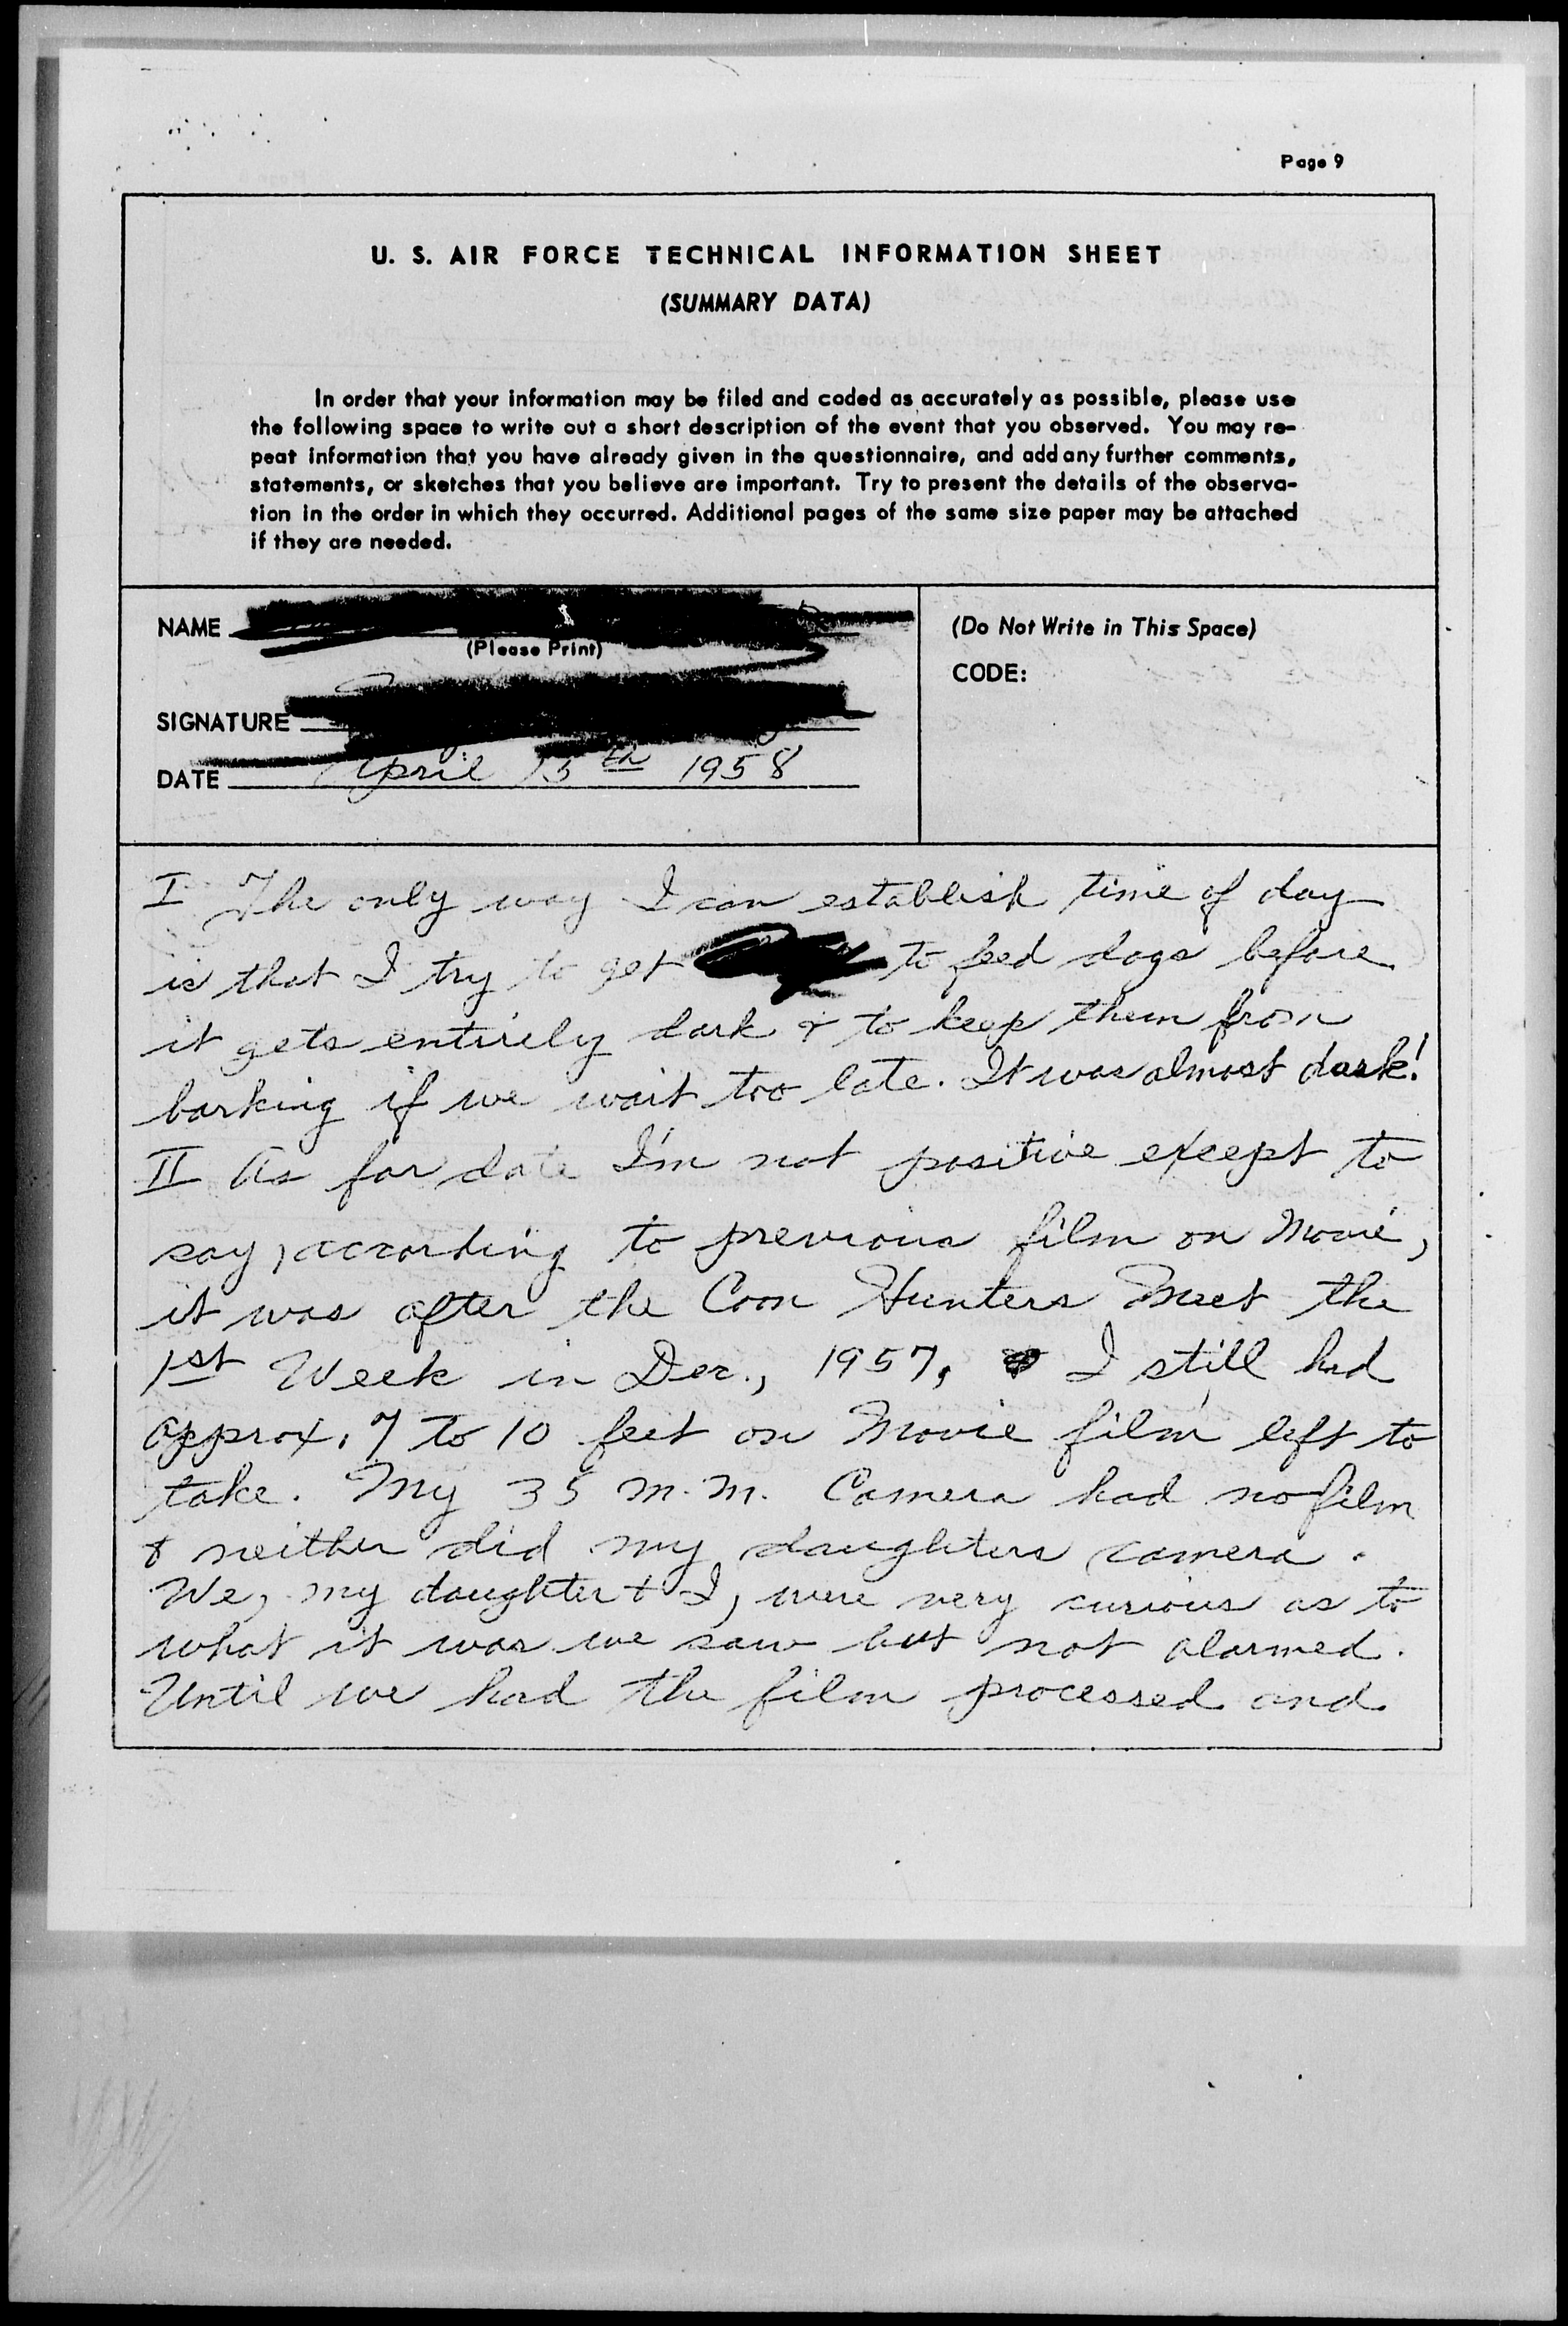 Page 9
U. S. AIR FORCE TECHNICAL INFORMATION SHEET
(SUMMARY DATA)
In order that your information may be filed and coded as accurately as possible, please use
the following space to write out a short description of the event that you observed. You may re-
peat information that you have already given in the questionnaire, and add any further comments,
statements, or sketches that you believe are important. Try to present the details of the observa-
tion in the order in which they occurred. Additional pages of the same size paper may be attached
if they are needed.
NAME
(Please Print)
SIGNATURE
DATE April 15th 1958
(Do Not Write in This Space)
CODE:
I The only way I can establish time of day
is that I try to get to feed dogs before
it gets entirely dark & to keep them from
barking if we wait too late. It was almost dark!
II As for date I'm not positive except to
say, according to previous film on Movie,
it was after the Coon Hunters Meet the
1st Week in Dec., 1957, I still had
approx. 7 to 10 feet on Movie film left to
take. My 35 m.m. Camera had no film
& neither did my daughters camera.
We, my daughter & I, were very curious as to
what it was we saw but not alarmed.
Until we had the film processed and